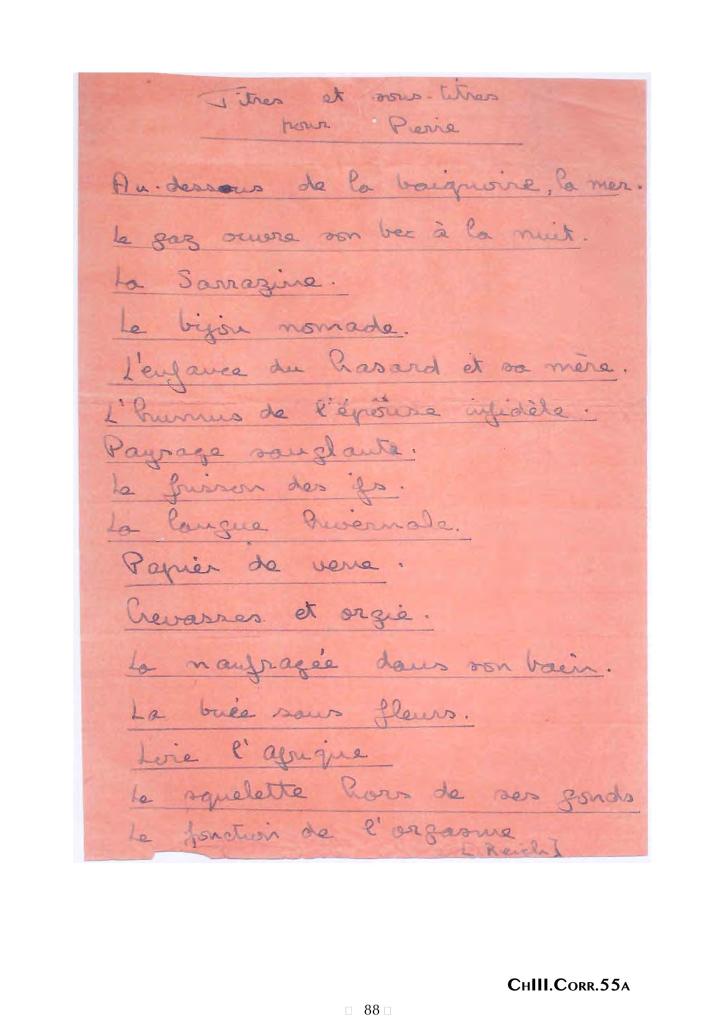 Titres et sous-titres
pour Pierre
Au-dessous de la baignoire, la mer.
Le gaz ouvre son bec à la nuit.
La Sarrazine.
Le bijou nomade.
L'enfance du hasard et sa mère.
L'humus de l'épouse infidèle.
Paysage sanglante.
Le frisson des ifs.
La langue hivernale.
Papier de verre.
Crevasses et orgie.
La naufragée dans son bain.
La buée sans fleurs.
Loie l'Afrique
Le squelette hors de ses gonds
Le fonction de l'orgasme
[Reich]
CHIII.CORR.55A
88